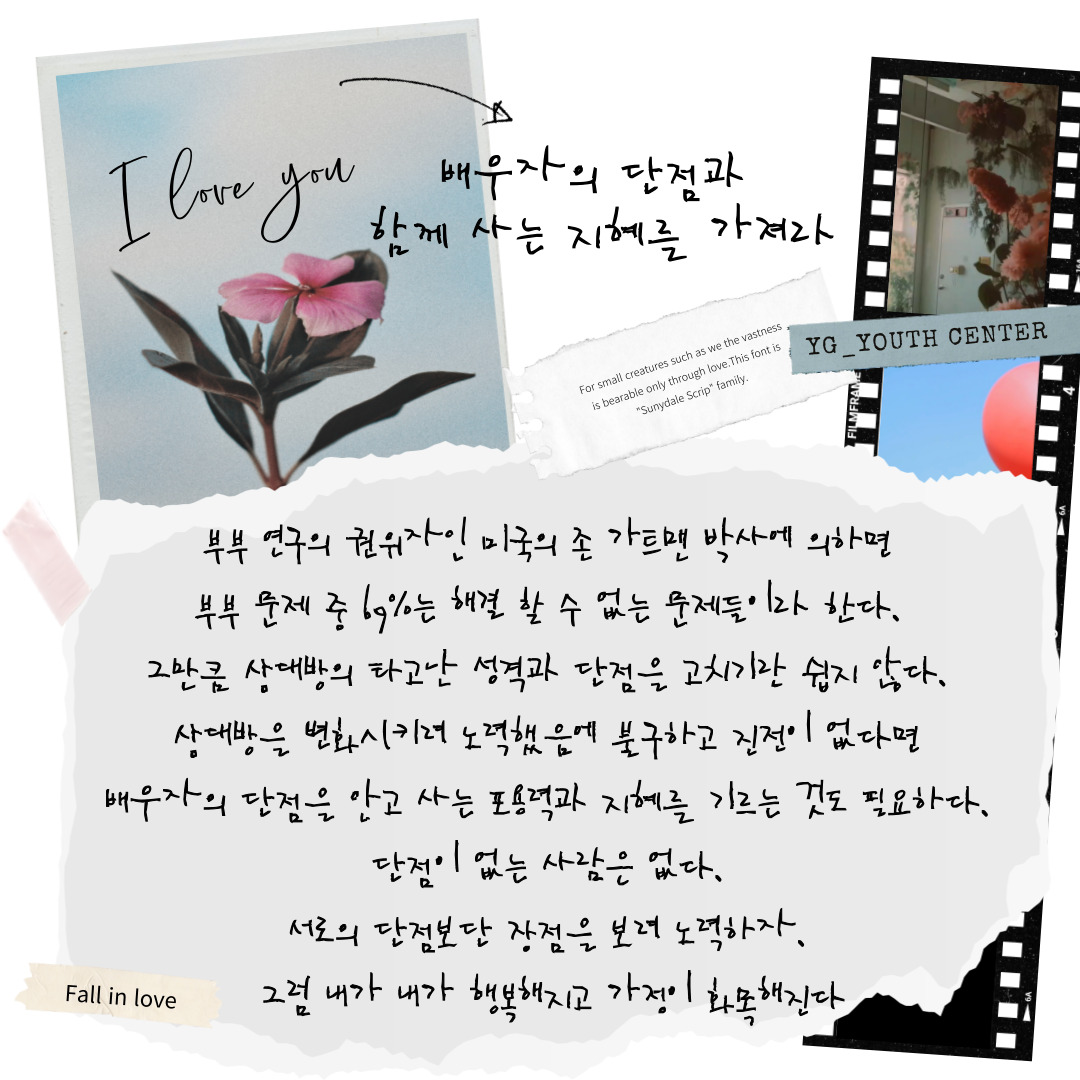 I love you
배우자의 단점과
함께 사는 지혜를 가져라
For small creatures such as we the vastness
is bearable only through love.This font is
"Sunydale Scrip" family.
YG_YOUTH CENTER
FILMFRAME
4
6A
부부 연구의 권위자인 미국의 존 가트맨 박사에 의하면
부부 문제 중 69%는 해결 할 수 없는 문제들이라 한다.
그만큼 상대방의 타고난 성격과 단점을 고치기란 쉽지 않다.
상대방을 변화시키려 노력했음에 불구하고 진전이 없다면
배우자의 단점을 안고 사는 포용력과 지혜를 기르는 것도 필요하다.
단점이 없는 사람은 없다.
서로의 단점보단 장점을 보려 노력하자.
그럼 내가 내가 행복해지고 가정이 화목해진다
Fall in love